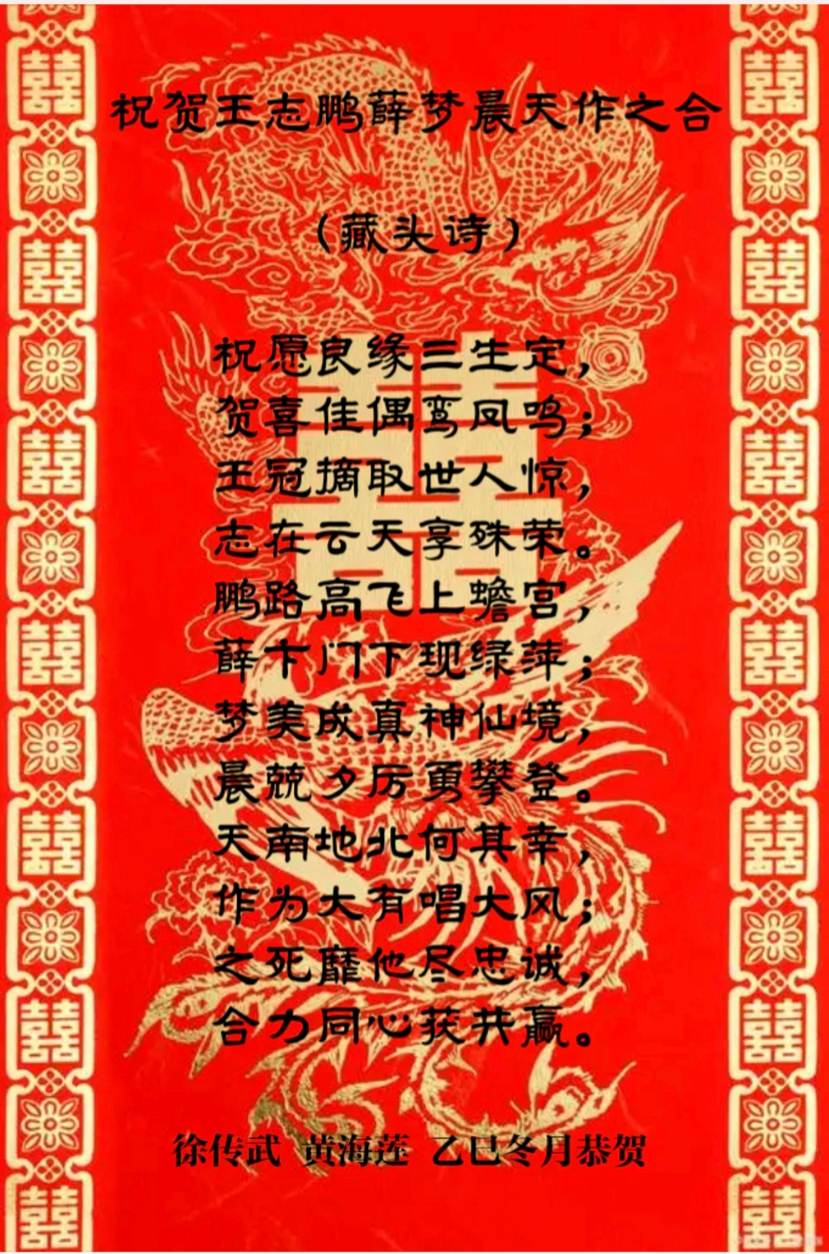 祝贺王志鹏薛梦晨天作之合
（藏头诗）
祝愿良缘三生定，
贺喜佳偶鸾凤鸣；
王冠摘取世人惊，
志在云天享殊荣。
鹏路高飞上蟾宫，
薛卞门下现绿萍；
梦美成真神仙境，
晨兢夕厉勇攀登。
天南地北何其幸，
作为大有唱大风；
之死靡他尽忠诚，
合力同心获共赢。
徐传武 黄海莲 乙巳冬月恭贺